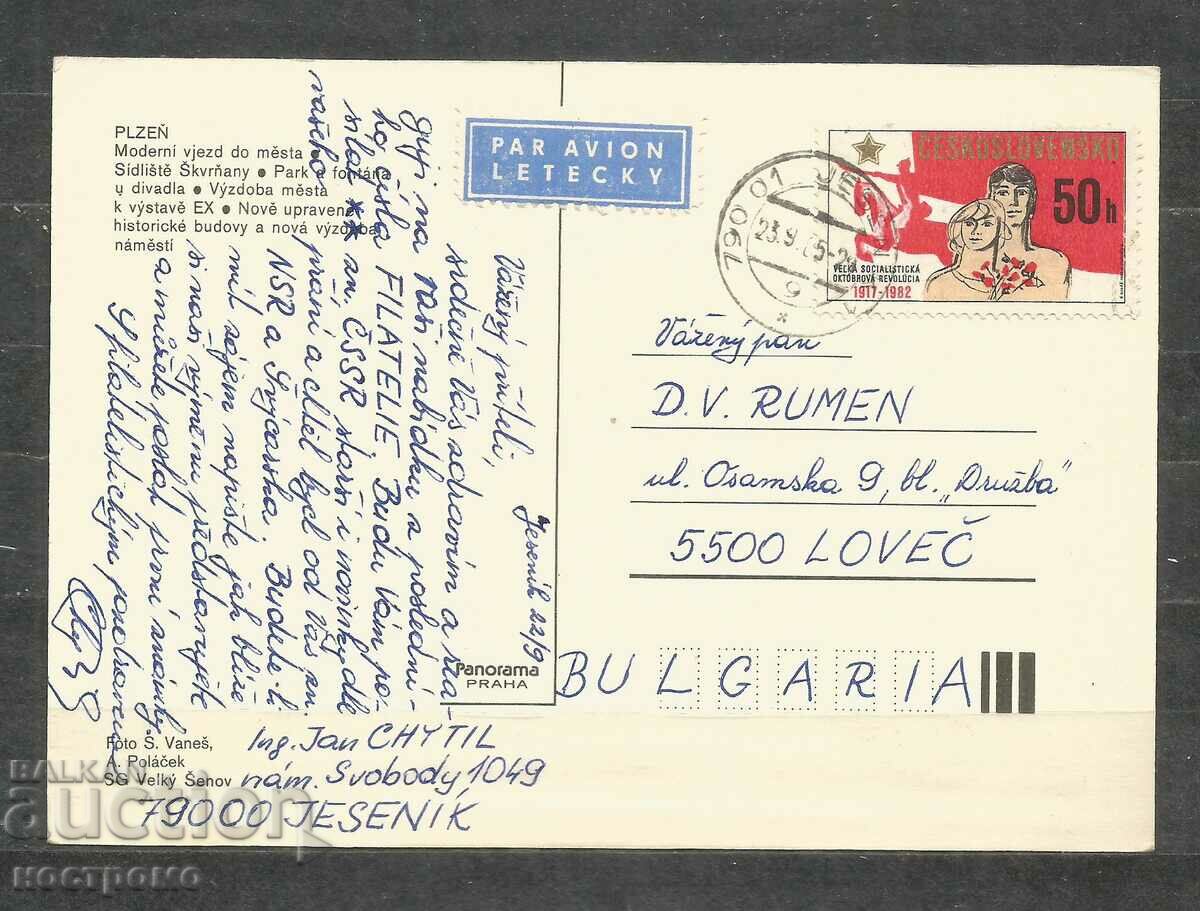 PLZEŇ
Moderní vjezd do města ●
Sídliště Škvrňany ● Park a fontána
u divadla ● Výzdoba města
k výstavě EX ● Nově upravené
historické budovy a nová výzdoba
náměstí
PAR AVION
LETECKY
ČESKOSLOVENSKO
50h
VEĽKÁ SOCIALISTICKÁ
OKTÓBROVÁ REVOLÚCIA
1917-1982
790 01 JES
23.9.85-2
9
Jeseník 22/9
Vážený příteli,
srdečně Vás zdravím a rea-
guji na Vaši nabídku z poslední-
ho čísla FILATELIE. Budu Vám po-
sílat xx zn. ČSSR starší i novinky dle
vašeho přání a chtěl bych od Vás zn.
NSR a Švýcarska. Budete-li
mít zájem napište jak blíže
si naši výměnu představujete
a můžete poslat první známky.
S filatelistickým pozdravem
Vážený pan
D.V. RUMEN
ul. Osamska 9, bl. „Družba"
5500 LOVEČ
BULGARIA
Panorama
PRAHA
Foto S. Vaneš,
A. Poláček
SG Velký Šenov
Ing. Jan CHYTIL
nám. Svobody 1049
79000 JESENÍK
BALKAN
auction
костромо